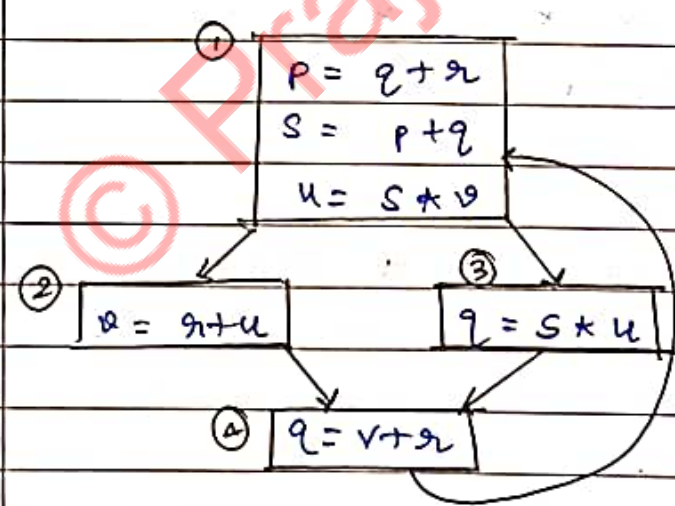 © Praj
①
p = q + r
S = p + q
u = S * v
②
v = r + u
③
q = S * u
④
q = v + r